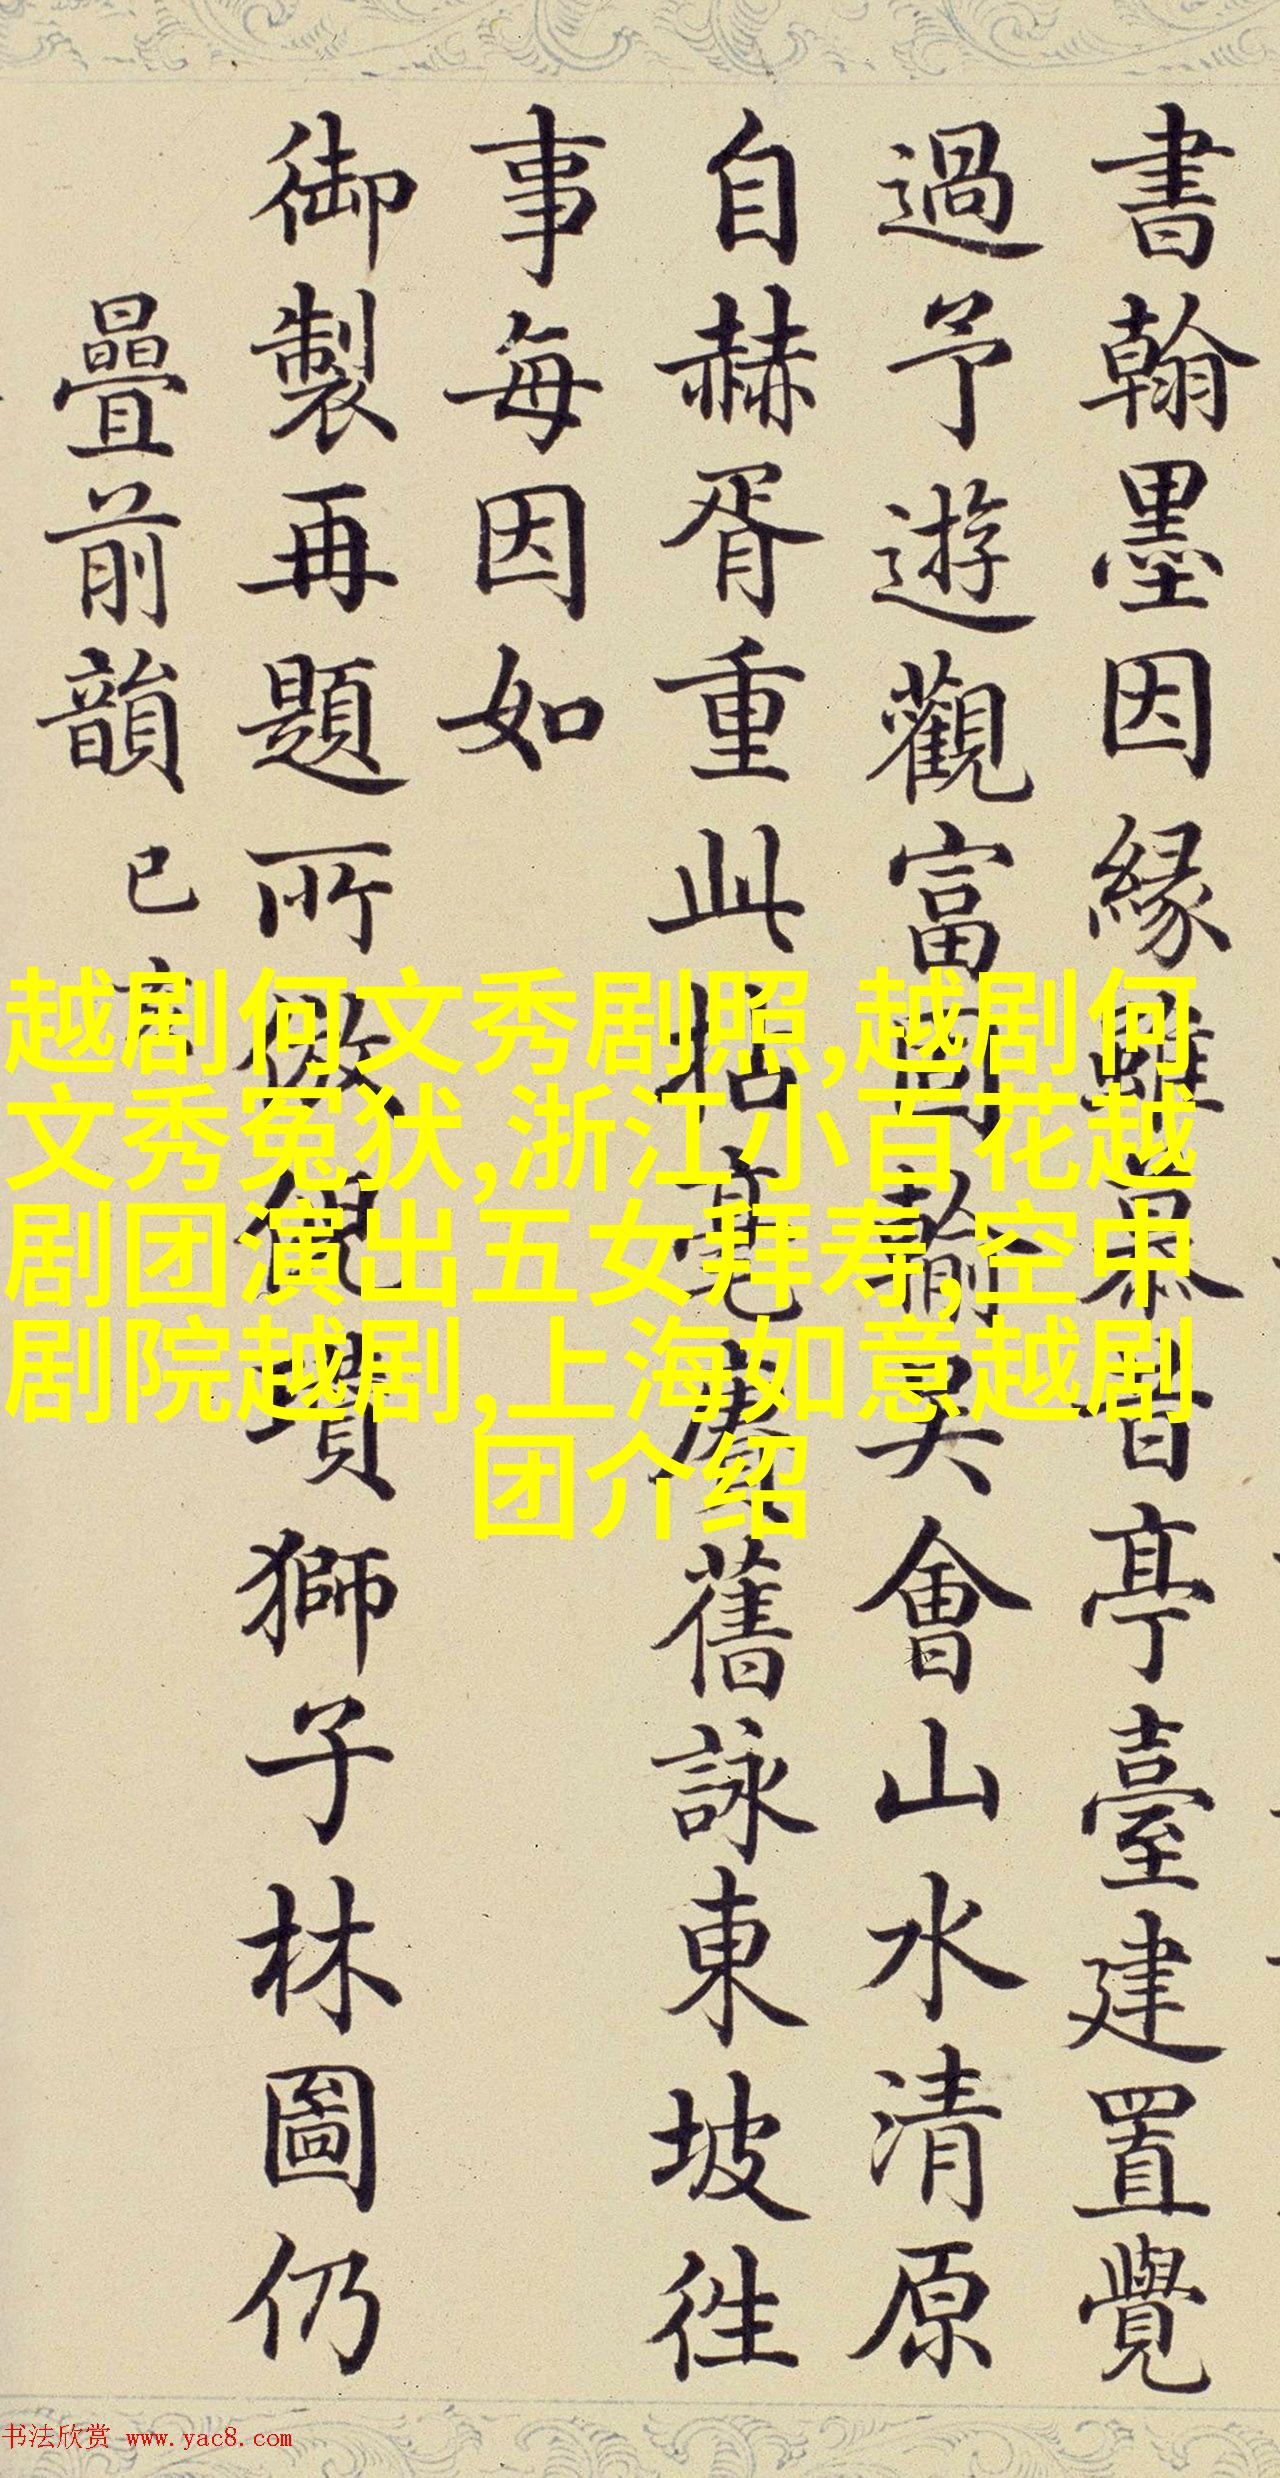 書翰墨因緣雖昔亭臺建置覺
過予遊觀富輸吴會山水清原
自赫胥重此拈毫賡舊詠東坡往
事每因如
御製再題所倣倪瓚獅子林圖仍
疊前韻 已
越剧何文秀剧照,越剧何
文秀冤狱,浙江小百花越
剧团演出五女拜寿,空中
剧院越剧,上海如意越剧
团介绍
书法欣赏 www.yac8.com